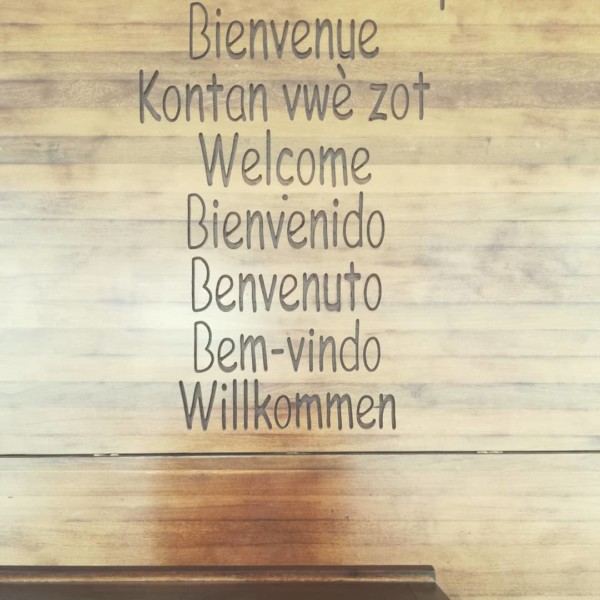 Bienvenue
Kontan vwè zot
Welcome
Bienvenido
Benvenuto
Bem-vindo
Willkommen